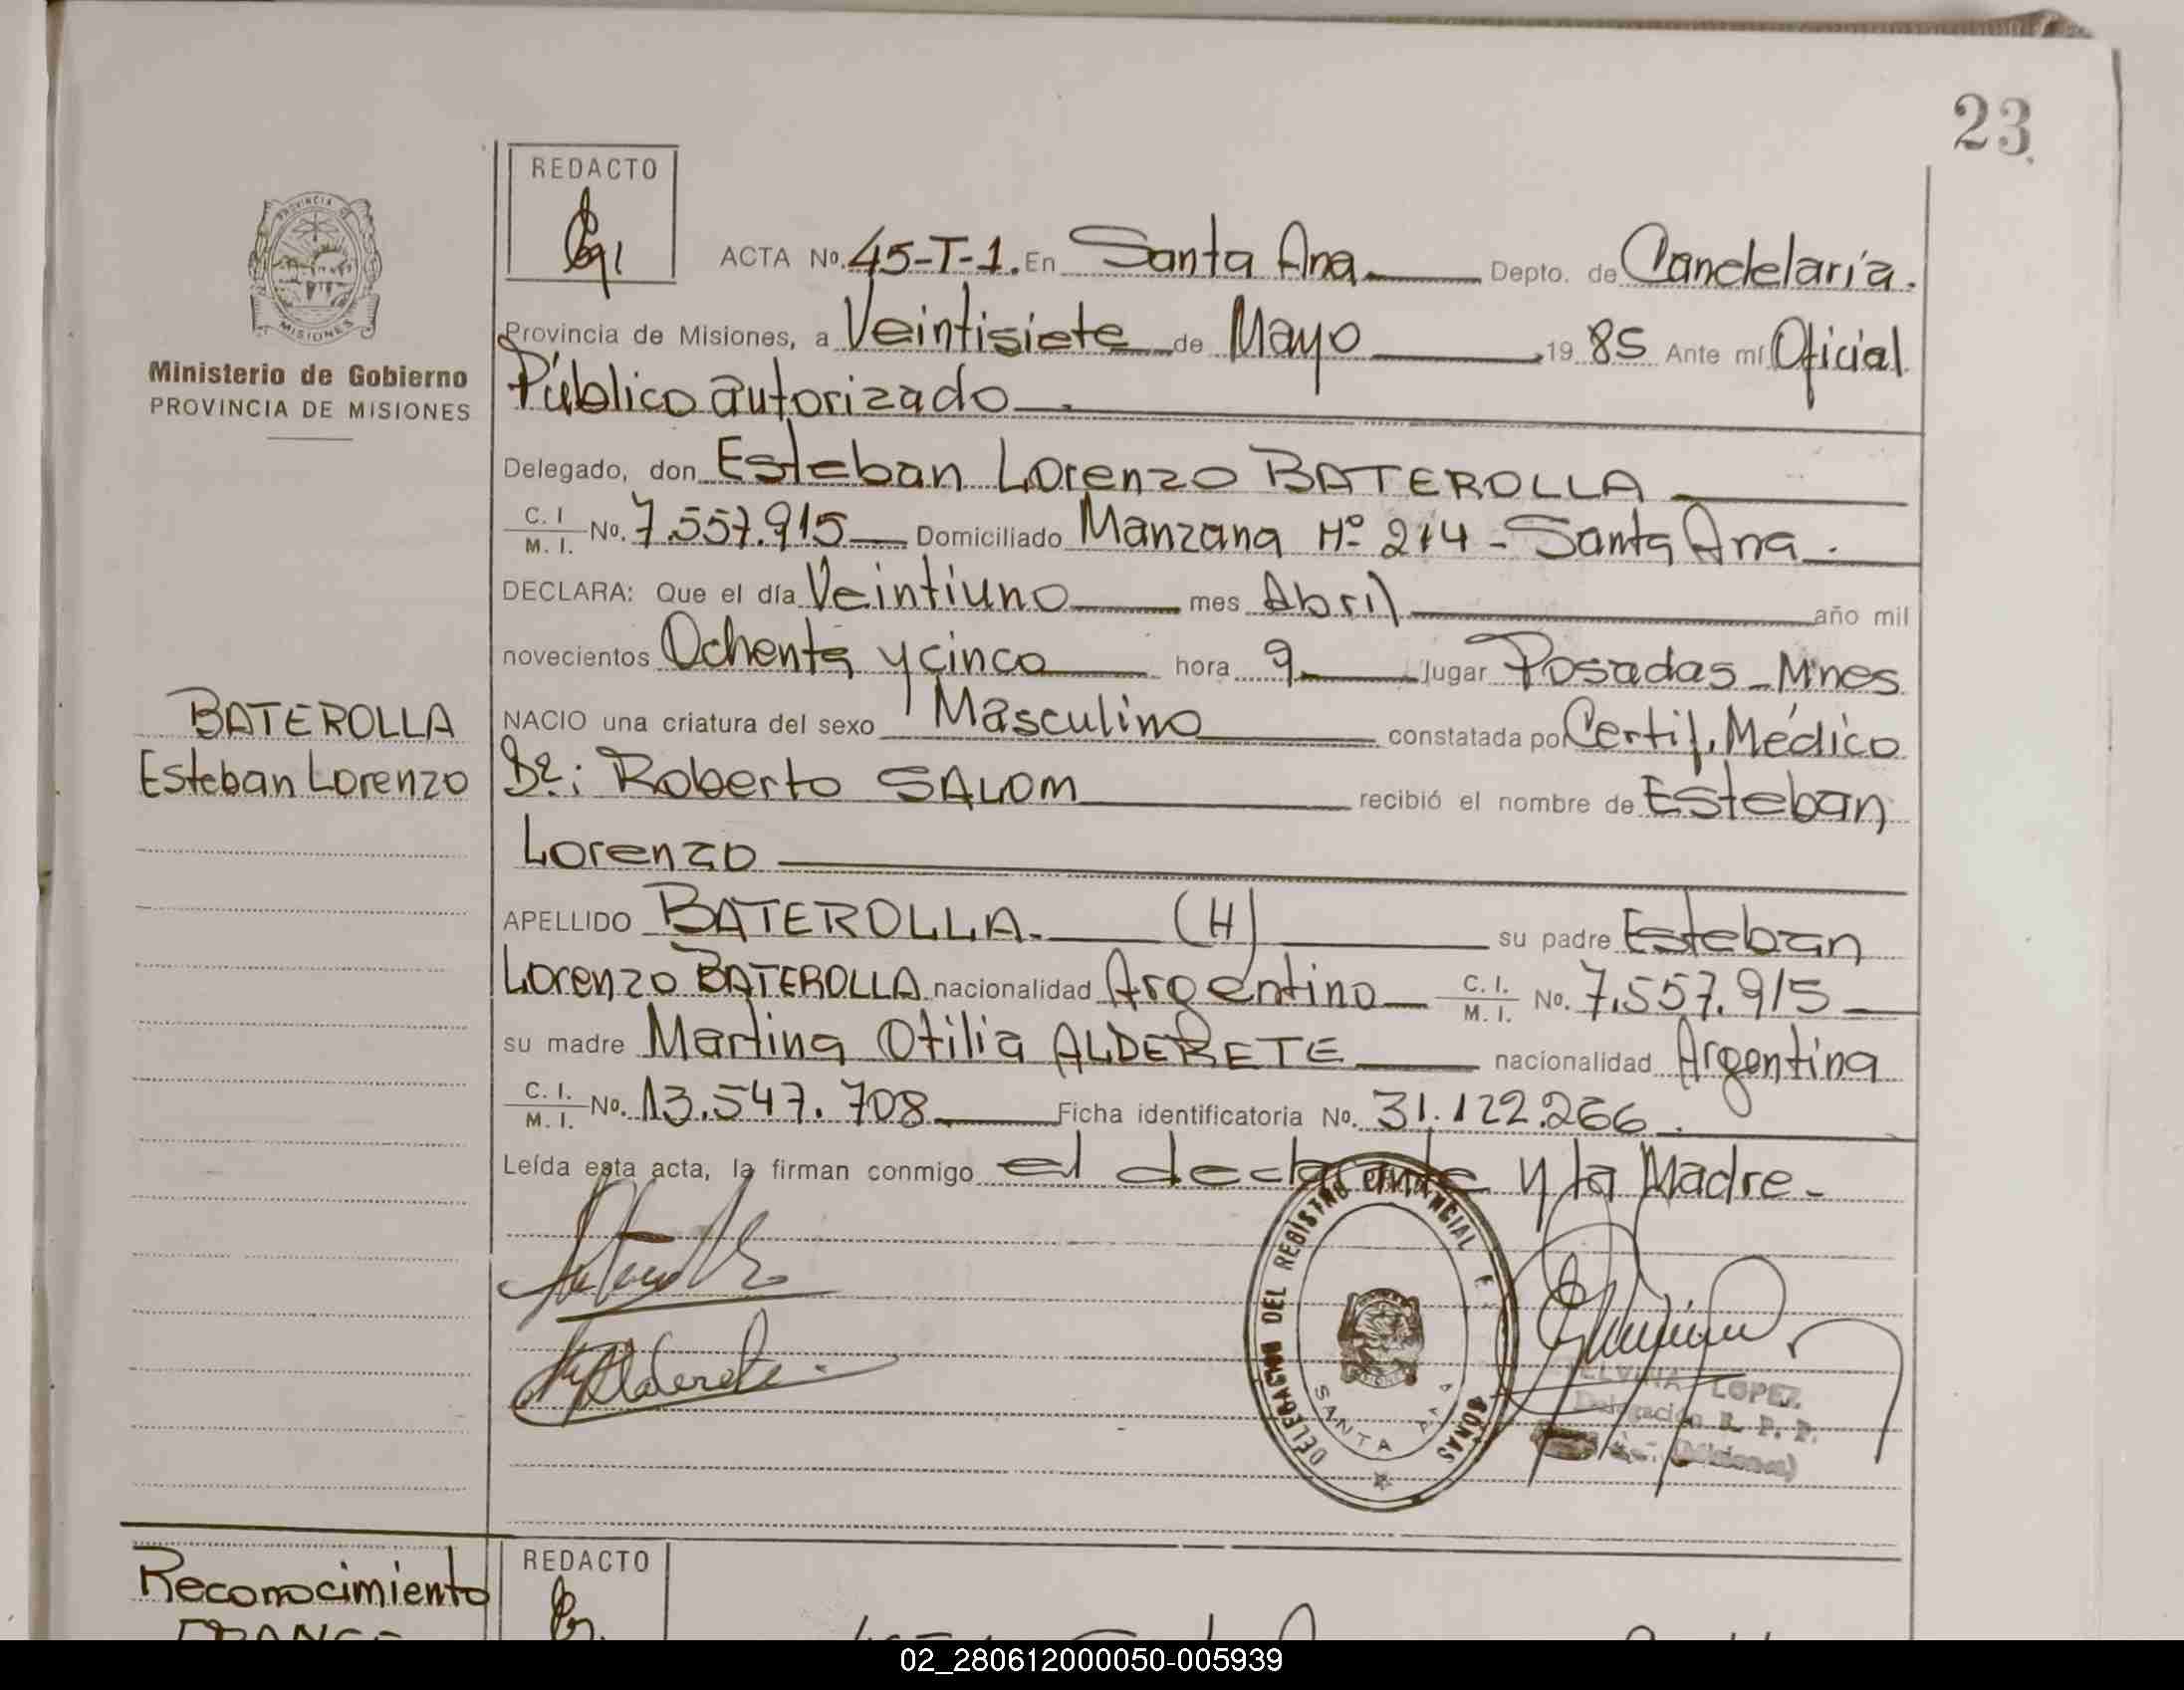 23
REDACTO
PROVINCIA DE
MISIONES
Ministerio de Gobierno
PROVINCIA DE MISIONES
ACTA No. 45-T-1. En Santa Ana Depto. de Candelaria.
Provincia de Misiones, a Veintisiete de Mayo 19 85 Ante mí Oficial
Público autorizado
Delegado, don Esteban Lorenzo BATEROLLA
C. I. M. I. No. 7.557.915 Domiciliado Manzana Nº 214 - Santa Ana.
DECLARA: Que el día Veintiuno mes Abril año mil
novecientos Ochenta y cinco hora 9 lugar Posadas - Mnes
BATEROLLA
Esteban Lorenzo
NACIO una criatura del sexo Masculino constatada por Certif. Médico
Dr: Roberto SALOM recibió el nombre de Esteban
Lorenzo
APELLIDO BATEROLLA. (H) su padre Esteban
Lorenzo BATEROLLA nacionalidad Argentino C. I. M. I. No. 7.557.915
su madre Martina Otilia ALDERETE nacionalidad Argentina
C. I. M. I. No. 13.547.708 Ficha identificatoria No. 31.122.266.
Leída esta acta, la firman conmigo el declarante y la Madre.
DELEGACION DEL REGISTRO PROVINCIAL
SANTA ANA
Alderete
ELVINA LOPEZ
Delegación R. P. P.
(Misiones)
Reconocimiento
REDACTO
02_280612000050-005939